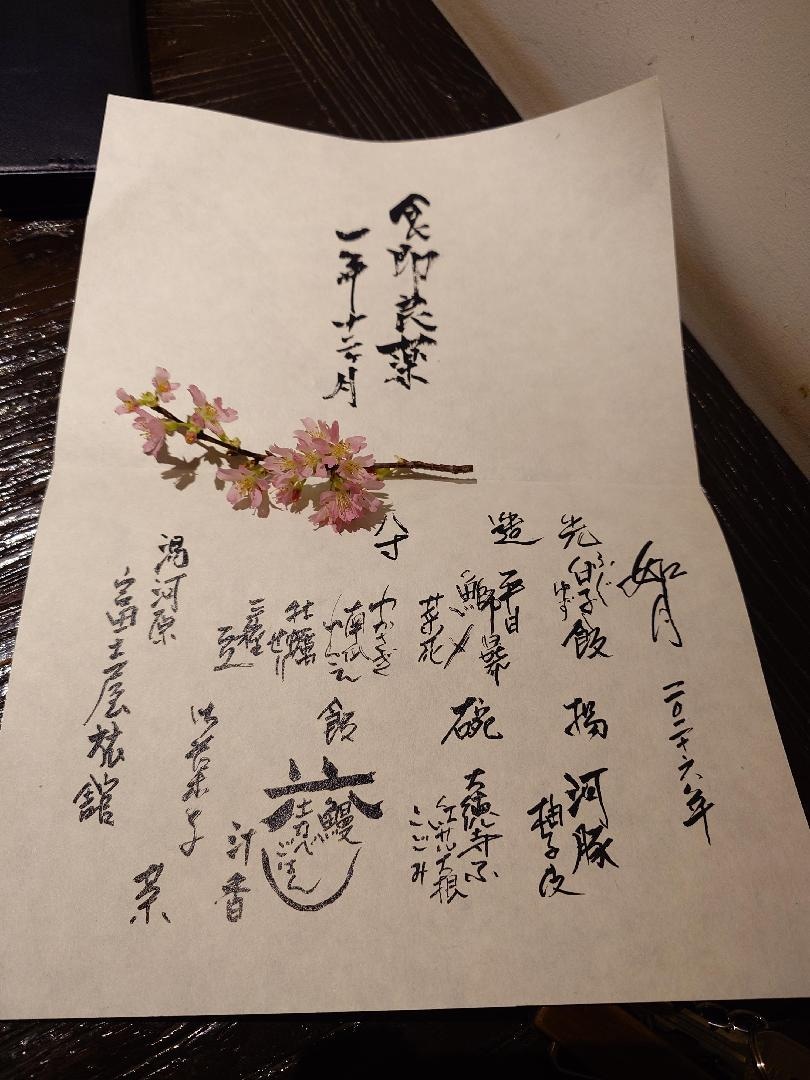 食即良薬
一年十二ヶ月
如月
二〇二十六年
先
ふぐ
白子飯
ゆず
揚
河豚
柚子皮
造
平目昆布〆
菜花
碗
大徳寺ふ
紅芯大根
こごみ
八寸
わかさぎ
南瓜
牡蠣
せり
三種豆
飯
鰻
土なべごはん
汁
香
水菓子
菓
湯河原
富士屋旅館